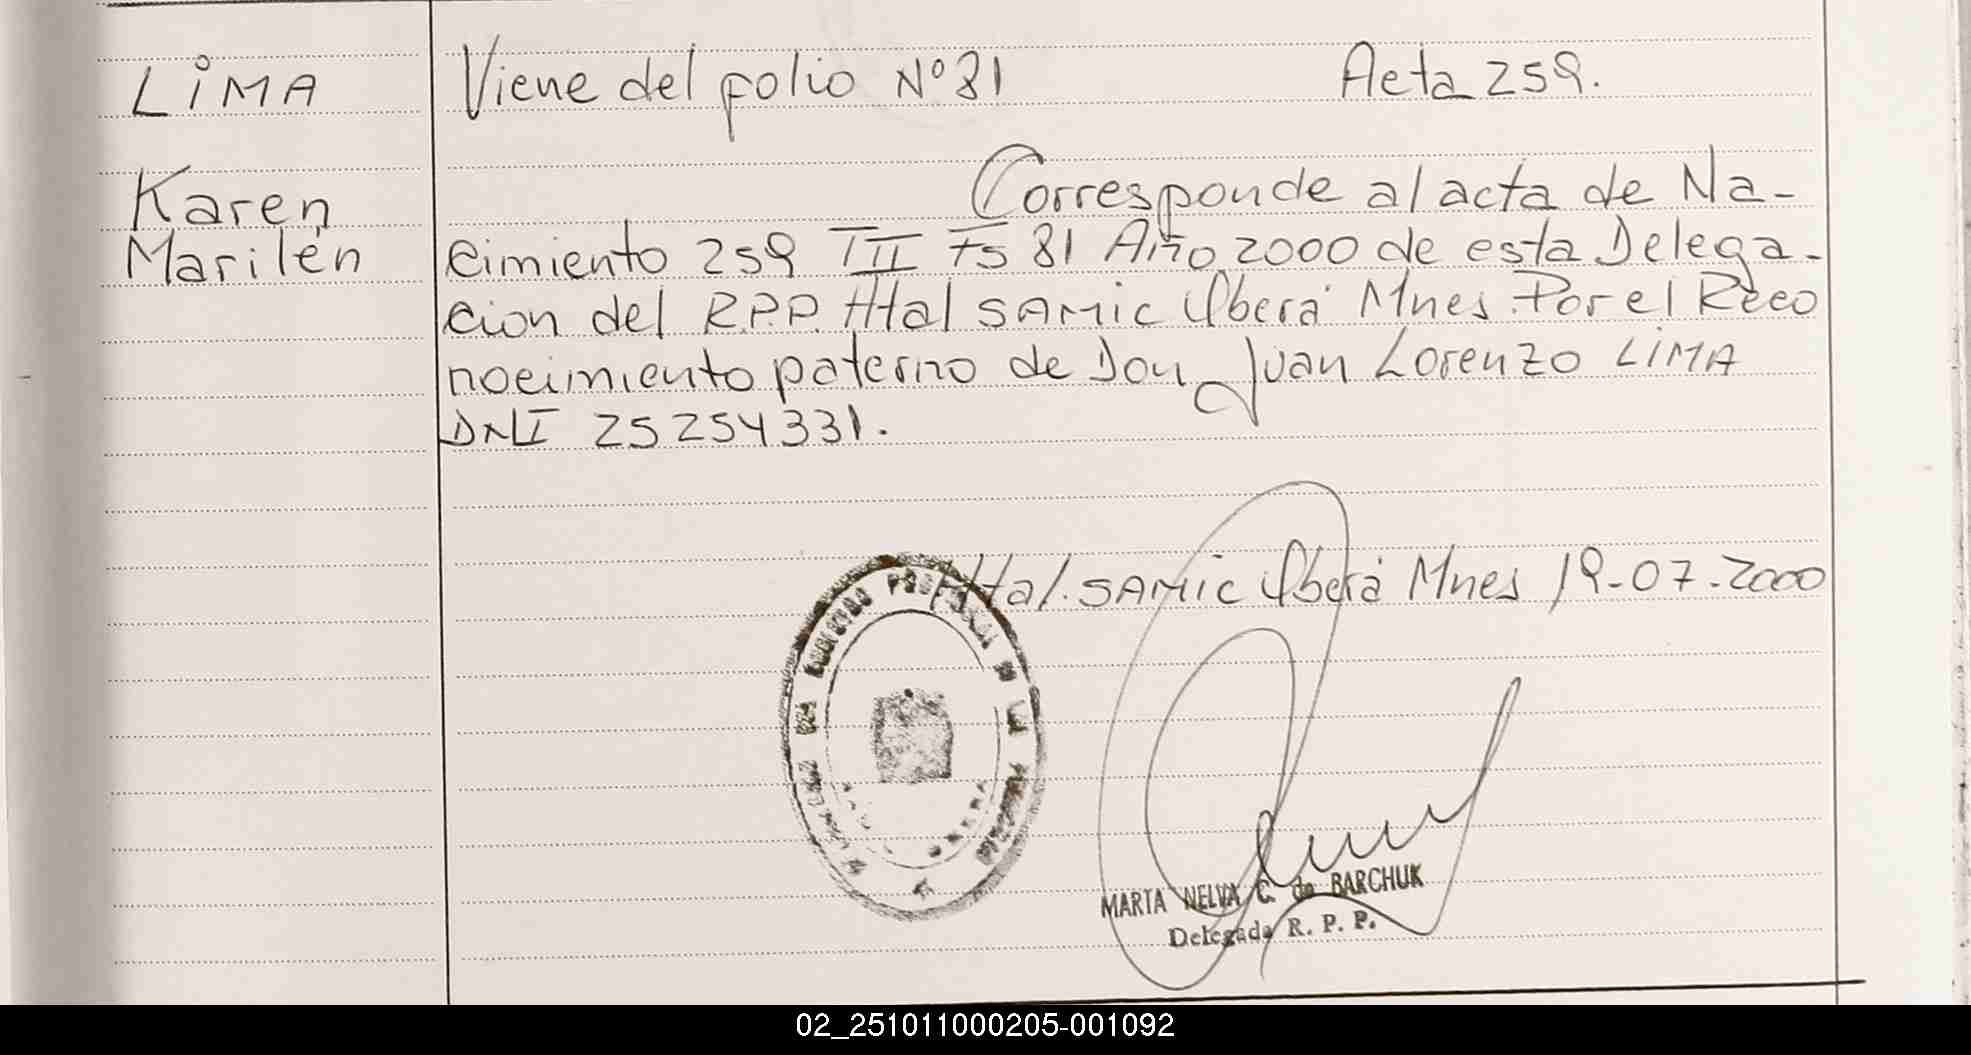 LiMA
Viene del folio Nº 81 Acta 259.
Karen
Marilén
Corresponde al acta de Na-
cimiento 259 TII Fs 81 Año 2000 de esta Delega-
cion del R.P.P. Htal SAMic Oberá Mnes. Por el Reco
nocimiento paterno de Don Juan Lorenzo LiMA
DNI 25254331.
Htal. SAMic Oberá Mnes 19-07-2000
MARTA NELVA C. de BARCHUK
Delegada R. P. P.
02_251011000205-001092